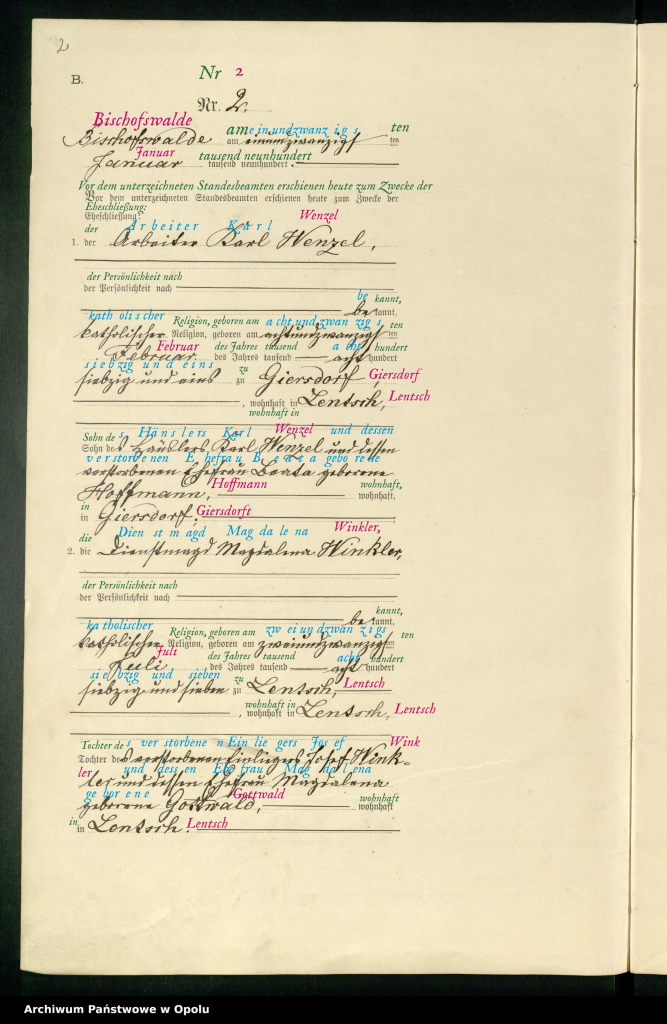 2
B.
Nr 2
Nr. 2.
Bischofswalde am einundzwanzigs ten
Bischofswalde am einundzwanzigs ten
Januar tausend neunhundert
Januar tausend neunhundert.
Vor dem unterzeichneten Standesbeamten erschienen heute zum Zwecke der
Vor dem unterzeichneten Standesbeamten erschienen heute zum Zwecke der
Eheschließung:
Eheschließung:
der Arbeiter Karl Wenzel
1. der Arbeiter Karl Wenzel,
der Persönlichkeit nach
der Persönlichkeit nach
be kannt,
be kannt,
katholischer Religion, geboren am achtundzwanzigs ten
katholischer Religion, geboren am achtundzwanzigs ten
Februar des Jahres tausend acht hundert
Februar des Jahres tausend acht hundert
siebzig und eins zu Giersdorf
siebzig und eins zu Giersdorf,
, wohnhaft in Lentsch,
wohnhaft in Lentsch
Sohn des Häuslers Karl Wenzel und dessen
Sohn des Häuslers Karl Wenzel und dessen
verstorbenen Ehefrau Beata geborene
verstorbenen Ehefrau Beata geborene
Hoffmann wohnhaft,
Hoffmann, wohnhaft,
in Giersdorft
in Giersdorf;
die Dienstmagd Magdalena Winkler,
2. die Dienstmagd Magdalena Winkler,
der Persönlichkeit nach
der Persönlichkeit nach
kannt,
be kannt,
katholischer Religion, geboren am zweiundzwanzigs ten
katholischer Religion, geboren am zweiundzwanzigs ten
Juli des Jahres tausend acht hundert
Juli des Jahres tausend acht hundert
siebzig und sieben zu Lentsch
siebzig und sieben zu Lentsch,
wohnhaft in Lentsch
, wohnhaft in Lentsch,
Tochter des verstorbenen Einliegers Josef Wink
Tochter des verstorbenen Einliegers Josef Wink-
ler und dessen Ehefrau Magdalena
ler und dessen Ehefrau Magdalena
geborene Gottwald wohnhaft
geborene Gottwald, wohnhaft
in Lentsch
in Lentsch.
Archiwum Państwowe w Opolu